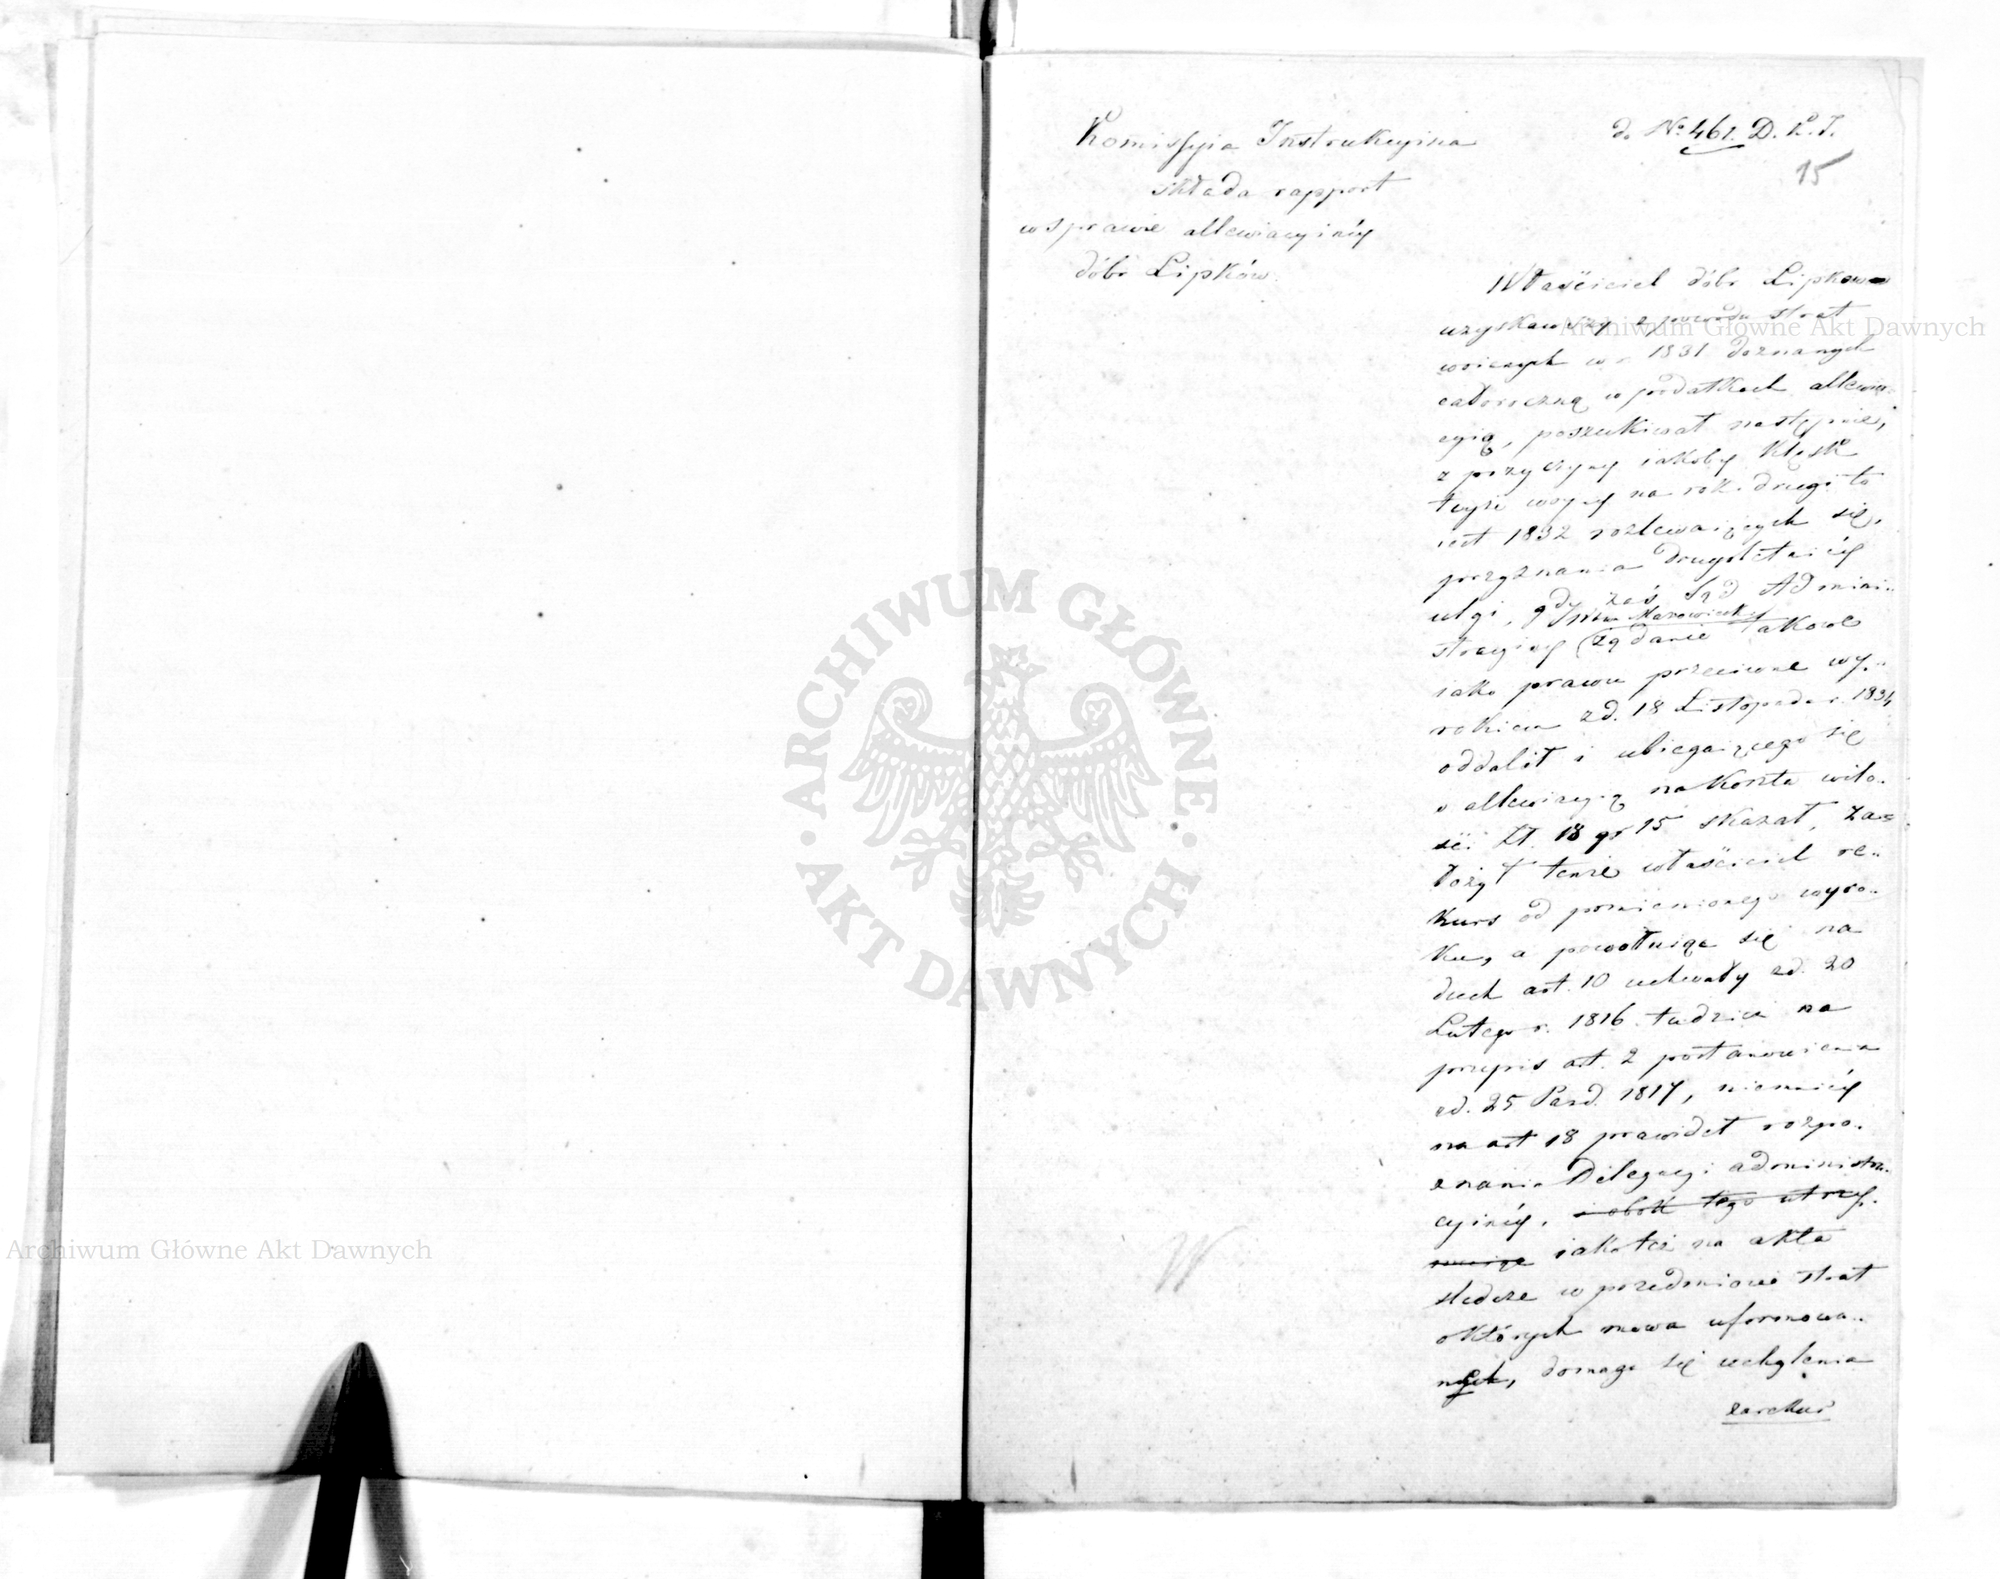 Komissyia Instrukcyina
składa rapport
w sprawie allewiacyinéy
dóbr Lipków.
do No. 461. D. K. I.
15
Właściciel dóbr Lipkowa
uzyskawszy z powodu strat
woiennych w r. 1831 doznanych
całoroczną w podatkach allewia-
cyią, poszukiwał następnie,
z przyczyny iakoby klęsk
teyże woyny na rok drugi to
iest 1832 rozlewaiących się,
przyznania drugoletniéy
ulgi, gdy zaś Sąd Admini-
Jntwa Mazowieck.
stracyiny żądanie takowe
iako prawu przeciwne wy-
rokiem z d. 18 Listopada r. 1834
oddalił i ubiegaiącego się
o allewiacyią na koszta w ilo-
ści Zł. 18 gr 15 skazał, za-
łożył tenże właściciel re-
kurs od pomienionego wyro-
ku, a powołuiąc się na
duch art. 10 uchwały z d. 20
Lutego r. 1816 tudzież na
przepis art. 2 postanowienia
z d. 25 Paźd. 1817, niemniéy
na art 18 prawideł rozpo-
znania Delegacyi administra-
cyinéy, i obok tego utrzy-
muiąc iakoteż na akta
śledcze w przedmiocie strat
o których mowa uformowa-
nych, domaga się uchylenia
zarckur
W
ARCHIWUM GŁÓWNE · AKT DAWNYCH ·
Archiwum Główne Akt Dawnych
Archiwum Główne Akt Dawnych